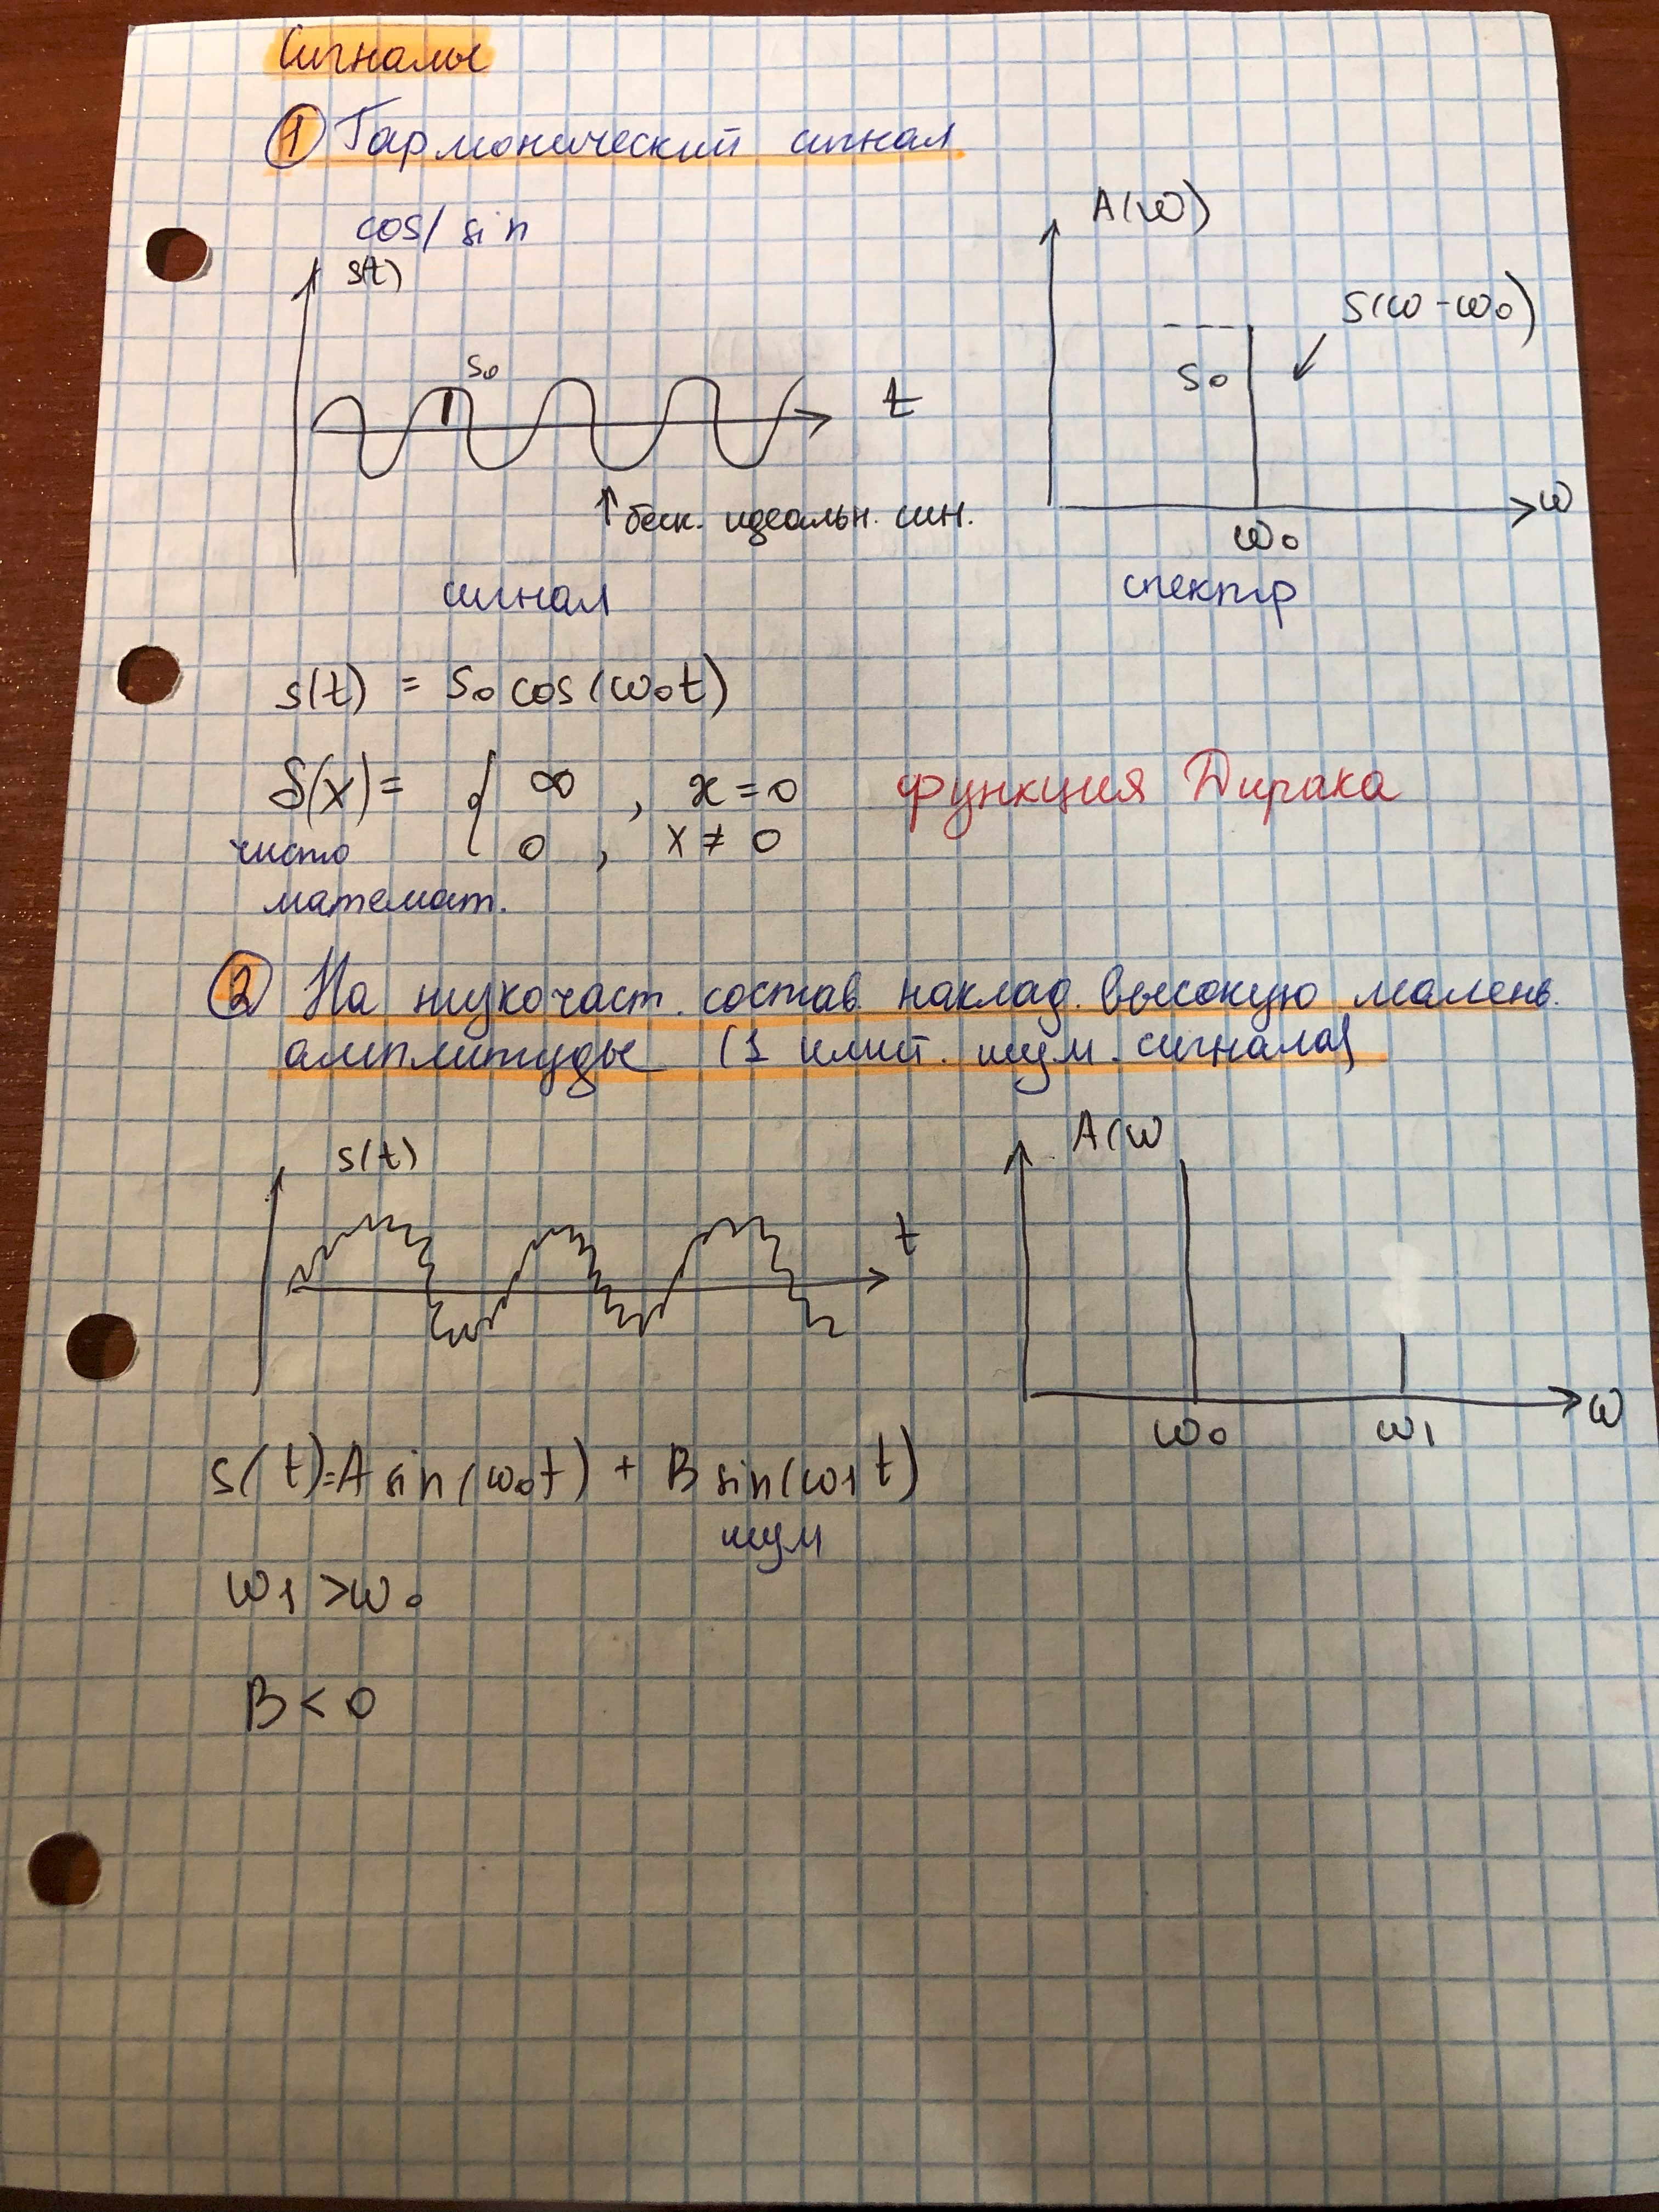 Сигналы
① Гармонический сигнал
cos/ sin
s(t)
S₀
t
↑ беск. идеальн. син.
сигнал
A(ω)
S(ω-ω₀)
S₀
ω
ω₀
спектр
s(t) = S₀ cos(ω₀t)
δ(x)= { ∞ , x=0 функция Дирака
0 , x ≠ 0
чисто
математ.
② На низкочаст. состав. наклад. высокую малень.
амплитуды (1 имит. шум. сигнала)
s(t)
t
A(ω
ω
ω₀ ω₁
s(t)=A sin(ω₀t) + B sin(ω₁t)
шум
ω₁ >ω₀
B < 0